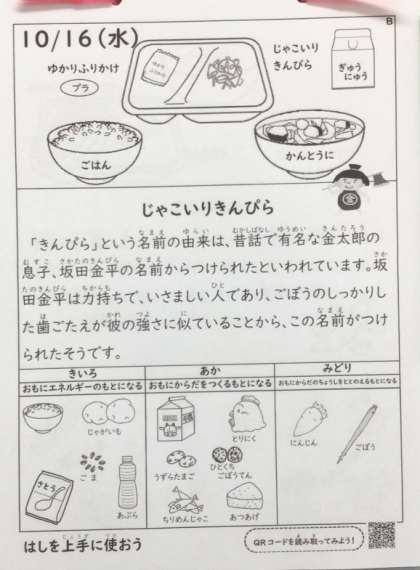 B
10/16(水)
ゆかりふりかけ
プラ
じゃこいり
きんぴら
ぎゅう
にゅう
ごはん
かんとうに
金
じゃこいりきんぴら
「きんぴら」という名前の由来は、昔話で有名な金太郎の
息子、坂田金平の名前からつけられたといわれています。坂
田金平は力持ちで、いさましい人であり、ごぼうのしっかりし
た歯ごたえが彼の強さに似ていることから、この名前がつけ
られたそうです。
きいろ
あか
みどり
おもにエネルギーのもとになる
おもにからだをつくるもとになる
おもにからだのちょうしをととのえるもとになる
じゃがいも
ごま
さとう
あぶら
とりにく
うずらたまご
ひとくち
ごぼうてん
ちりめんじゃこ
あつあげ
にんじん
ごぼう
はしを上手に使おう
QRコードを読み取ってみよう!